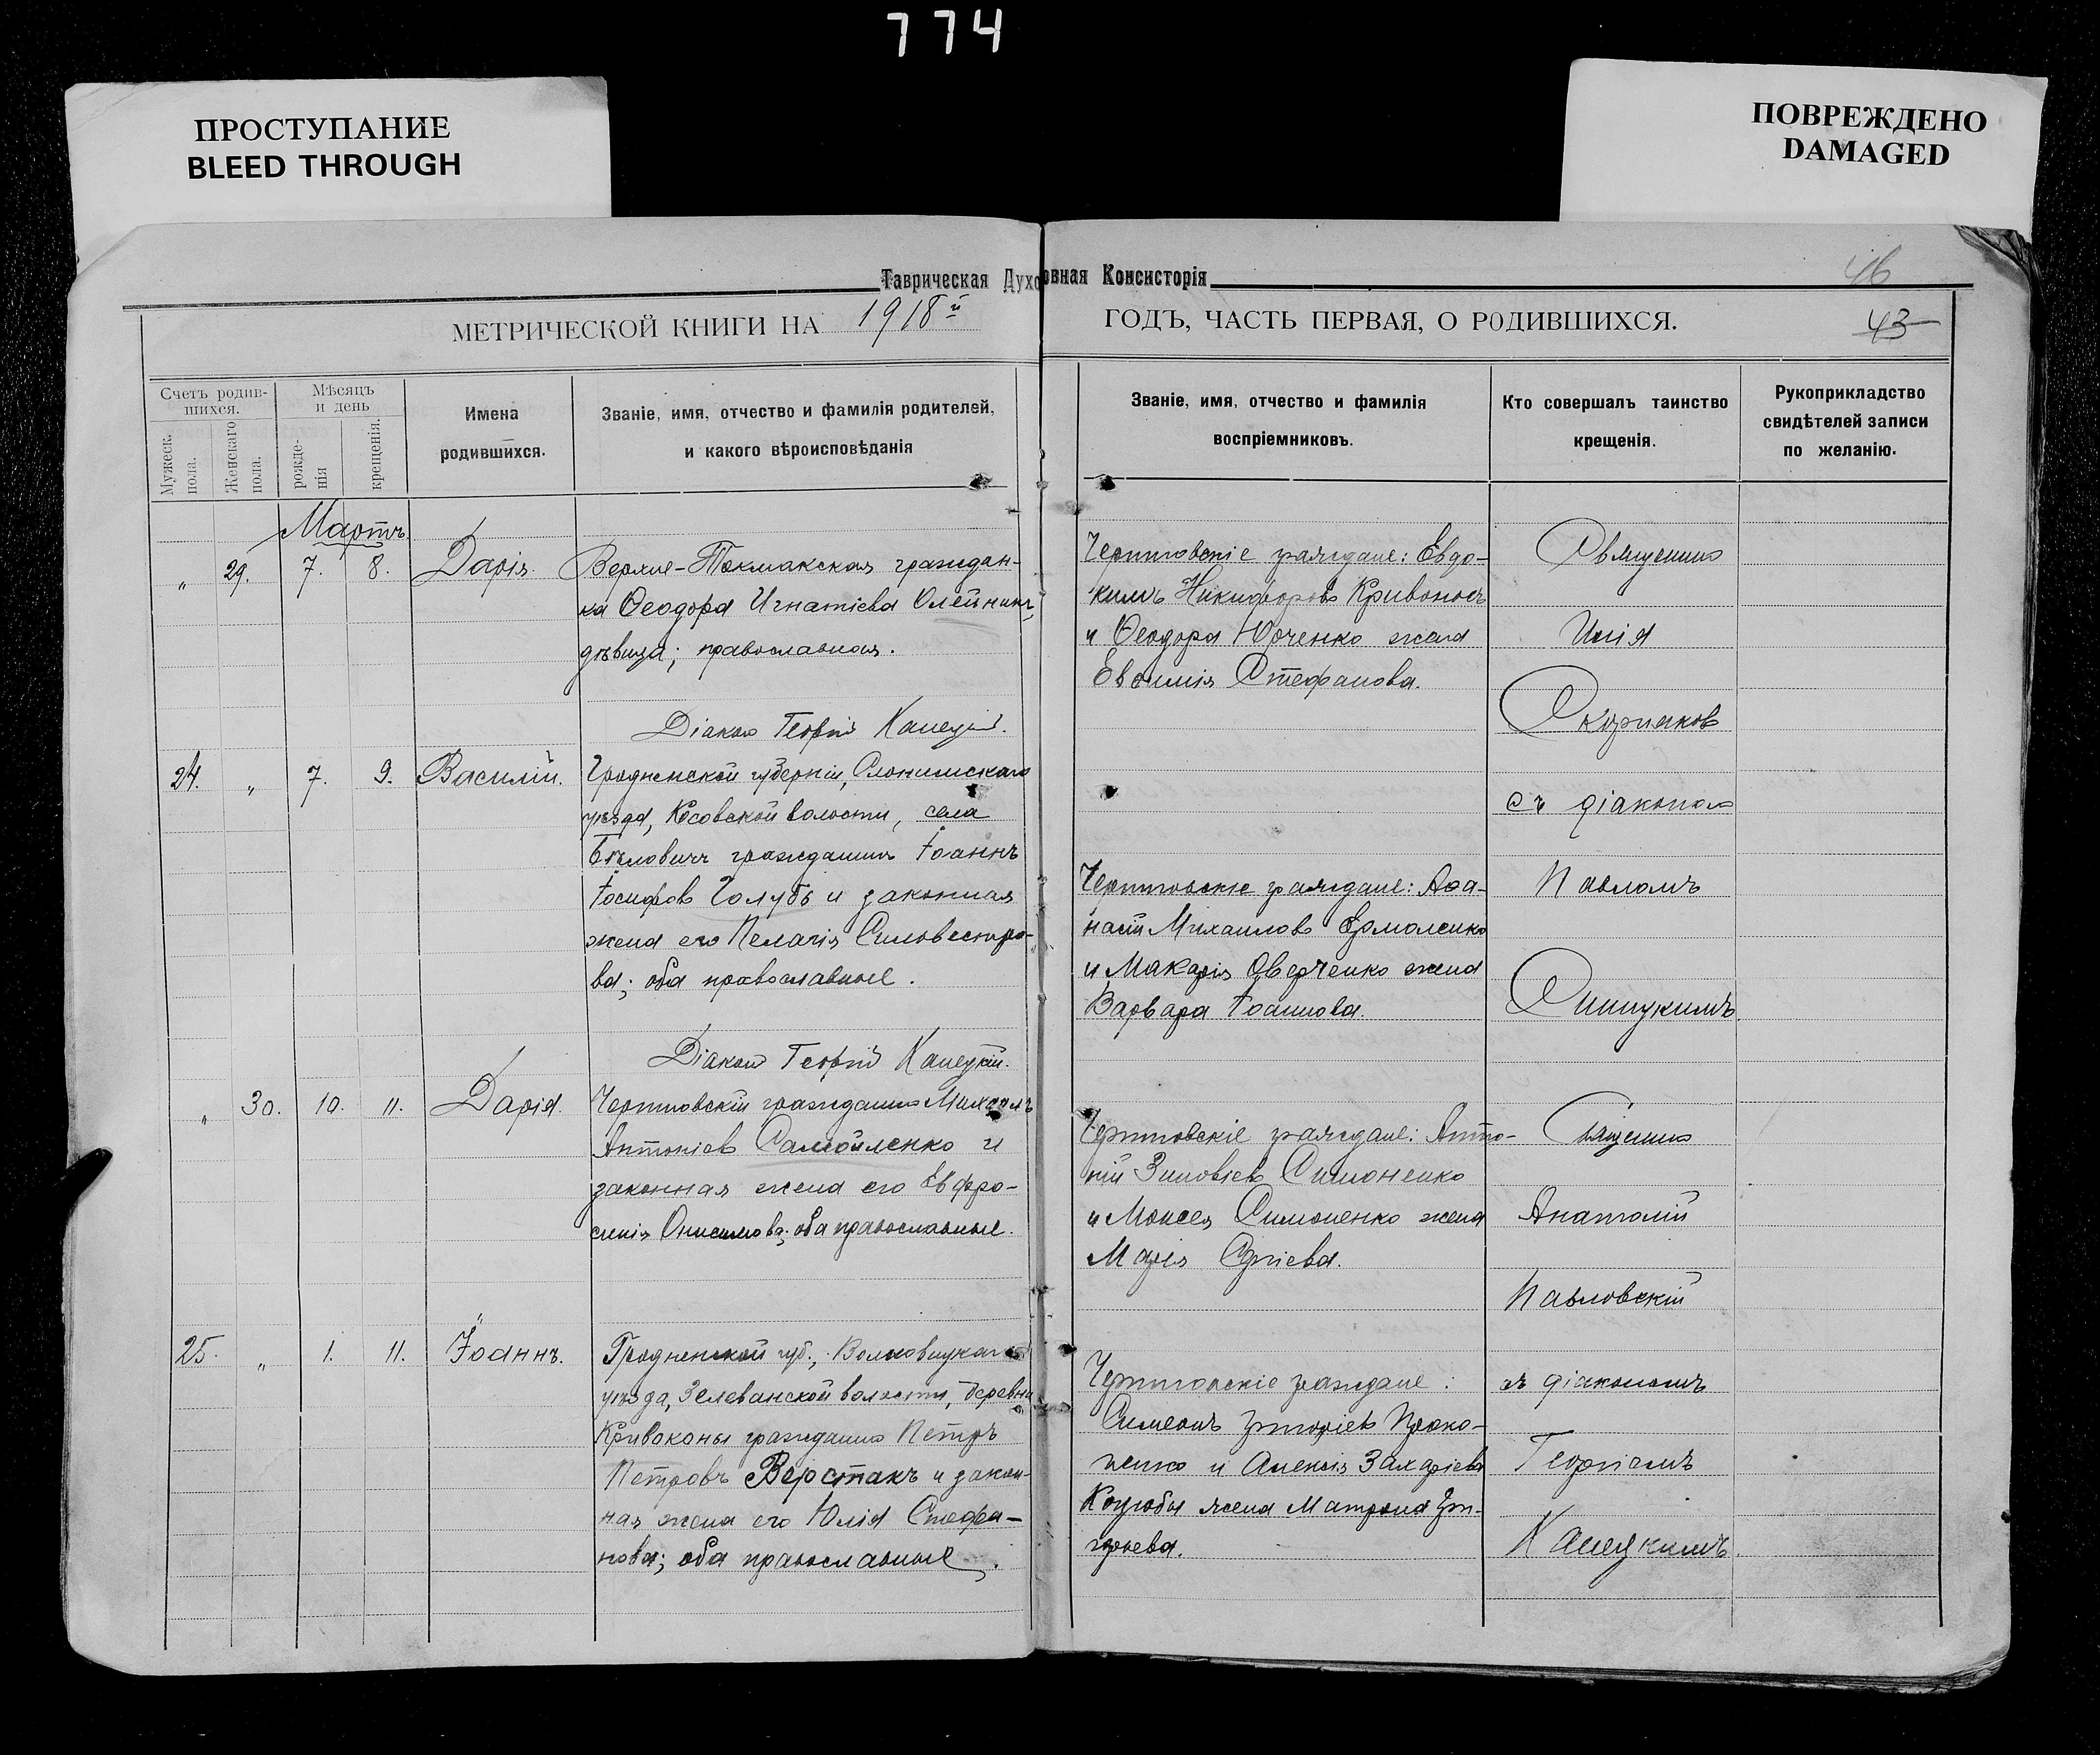 774
ПРОСТУПАНИЕ
BLEED THROUGH
ПОВРЕЖДЕНО
DAMAGED
Таврическая Духовная Консисторія
46
МЕТРИЧЕСКОЙ КНИГИ НА 1918й ГОДЪ, ЧАСТЬ ПЕРВАЯ, О РОДИВШИХСЯ.
43
Счетъ родив-
шихся.
Мужеск.
пола.
Женскаго
пола.
Мѣсяцъ
и день
рожде-
нія
крещенія.
Имена
родившихся.
Званіе, имя, отчество и фамилія родителей,
и какого вѣроисповѣданія
Званіе, имя, отчество и фамилія
воспріемниковъ.
Кто совершалъ таинство
крещенія.
Рукоприкладство
свидѣтелей записи
по желанію.
Мартъ
„ 29. 7. 8. Дарія.
Верхне-Токмакская граждан-
ка Ѳеодора Игнатіева Олейникъ,
дѣвица; православная.
Діакон Георгій Канецкій.
Черниговскіе граждане: Евдо-
кимъ Никифоровъ Кривоносъ
и Ѳеодора Юрченко жена
Евѳимія Стефанова.
24. „ 7. 9. Василій.
Гродненской губерніи, Слонимскаго
уѣзда, Косовской волости, села
Бѣловичи гражданинъ Іоаннъ
Іосифовъ Голубъ и законная
жена его Пелагія Сильвестро-
ва; оба православные.
Діакон Георгій Канецкій.
Черниговскіе граждане: Аѳа-
насій Михаиловъ Ермоленко
и Макарія Оверченко жена
Варвара Іоаннова.
Священникъ
Илія
Скорняковъ
съ діакономъ
Павломъ
„ 30. 10. 11. Дарія.
Черниговскій гражданинъ Михаилъ
Антоніевъ Самойленко и
законная жена его Евфро-
синія Онисимова; оба православные.
Черниговскіе граждане: Анто-
ній Зиновіевъ Симоненко
и Моисея Симоненко жена
Марія Сергіева.
25. „ 1. 11. Іоаннъ.
Гродненской губ., Волковыцкаго
уѣзда, Зелеванской волости, деревни
Кривоконы гражданинъ Петръ
Петровъ Верстакъ и закон-
ная жена его Юлія Стефа-
нова; оба православные.
Черниговскіе граждане:
Симеонъ Григоріевъ Проко-
пенко и Алексія Захаріева
Коцюбы жена Матрона Гри-
горьева.
Священникъ
Анатолій
Павловскій
съ діакономъ
Георгіемъ
Канецкимъ.